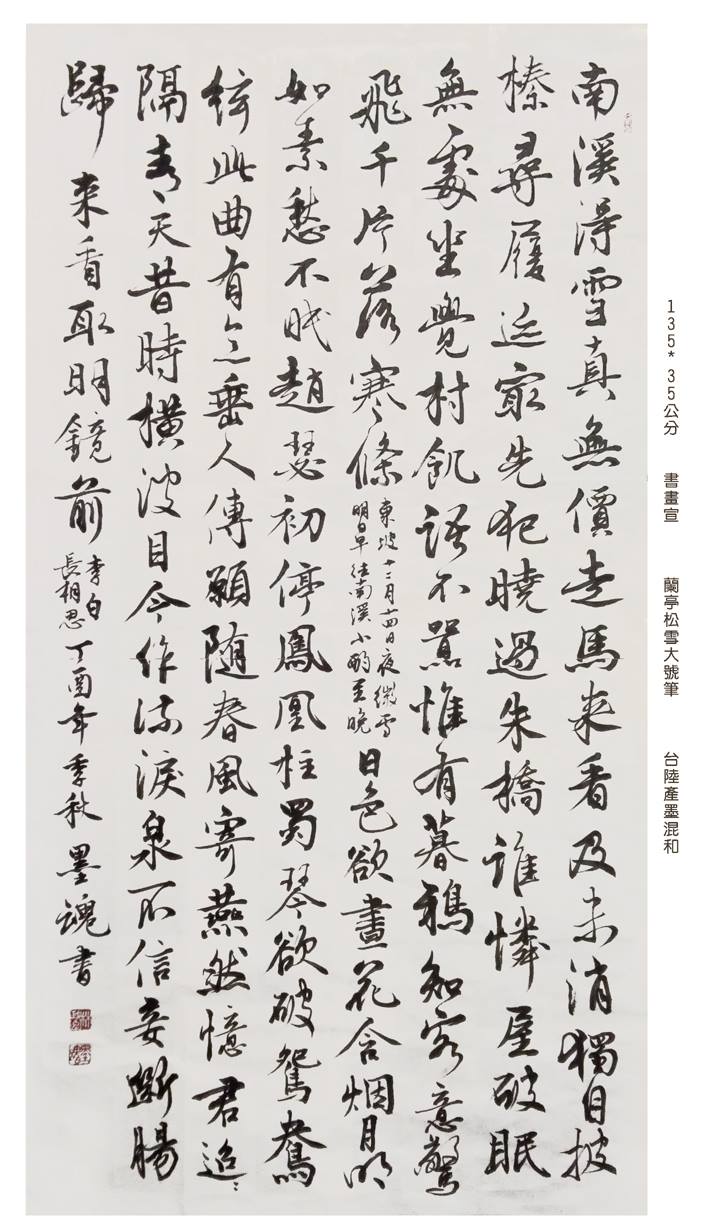 南溪得雪真無價走馬來看及未消獨自披
榛尋履迹最先犯曉過朱橋誰憐屋破眠
無處坐覺村飢語不囂惟有暮鴉知客意驚
飛千片落寒條
東坡十二月十四日夜微雪
明日早往南溪小酌至晚
日色欲盡花含烟月明
如素愁不眠趙瑟初停鳳凰柱蜀琴欲破鴛鴦
絃此曲有意無人傳願随春風寄燕然憶君迢〻
隔青天昔時橫波目今作流淚泉不信妾斷腸
歸來看取明鏡前
李白
長相思
丁酉年季秋墨魂書
135*35公分 書畫宣 蘭亭松雪大號筆 台陸產墨混和